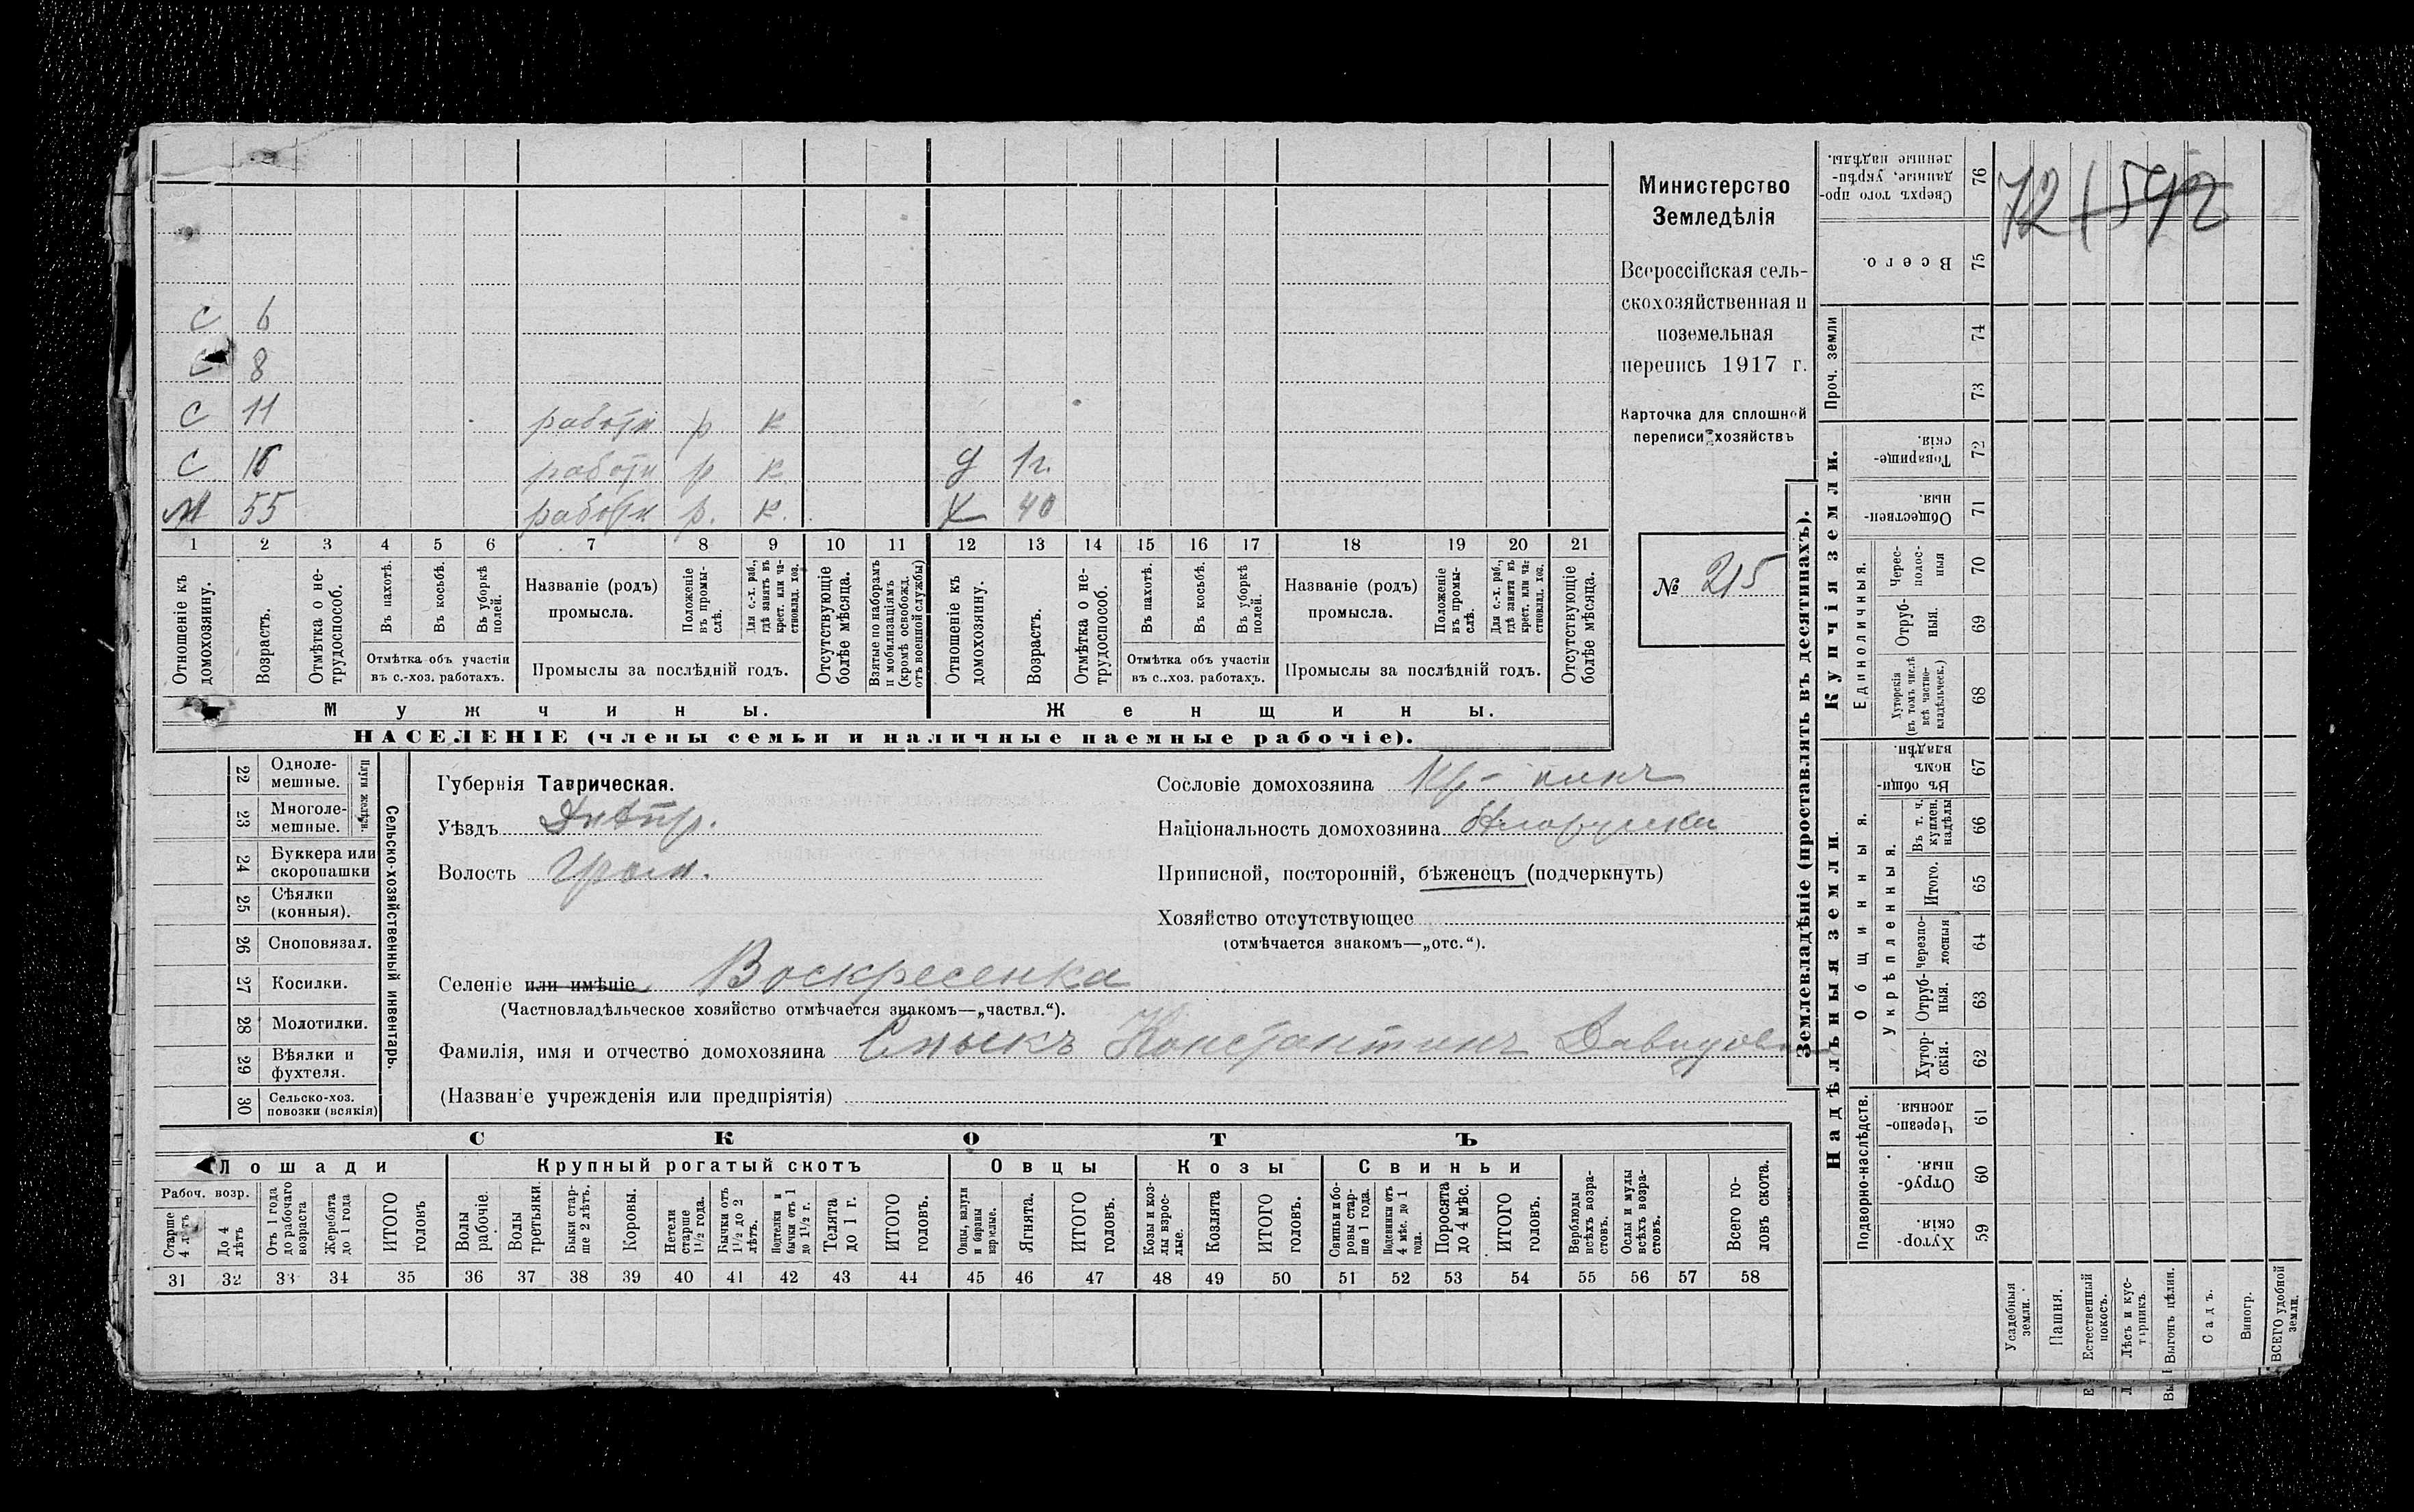 С 6
С 8
С 11 работн р к
С 16 работн р к Д 1г.
М 55 работн р. к. Ж 40
1 2 3 4 5 6 7 8 9 10 11 12 13 14 15 16 17 18 19 20 21
Отношеніе къ домохозяину.
Возрастъ.
Отмѣтка о не-
трудоспособ.
Въ пахотѣ.
Въ косьбѣ.
Въ уборкѣ
полей.
Отмѣтка объ участіи
въ с.-хоз. работахъ.
Названіе (родъ)
промысла.
Положеніе
въ промы-
слѣ.
Для с.-х. раб.,
гдѣ занятъ въ
крест. или ча-
стновлад. хоз.
Промыслы за послѣдній годъ.
Отсутствующіе
болѣе мѣсяца.
Взятые по наборамъ
и мобилизаціямъ
(кромѣ освобожд.
отъ военной службы)
Отношеніе къ
домохозяину.
Возрастъ.
Отмѣтка о не-
трудоспособ.
Въ пахотѣ.
Въ косьбѣ.
Въ уборкѣ
полей.
Отмѣтка объ участіи
въ с..хоз. работахъ.
Названіе (родъ)
промысла.
Положеніе
въ промы-
слѣ.
Для с.-х. раб.,
гдѣ занята въ
крест. или ча-
стновлад. хоз.
Промыслы за послѣдній годъ.
Отсутствующіе
болѣе мѣсяца.
Мужчины.
Женщины.
НАСЕЛЕНІЕ (члены семьи и наличные наемные рабочіе).
Министерство
Земледѣлія
Всероссійская сель-
скохозяйственная и
поземельная
перепись 1917 г.
Карточка для сплошной
переписи хозяйствъ
№ 215
22 Одноле-
мешные.
23 Многоле-
мешные.
Плуги желѣзн.
24 Буккера или
скоропашки
25 Сѣялки
(конныя).
26 Сноповязал.
27 Косилки.
28 Молотилки.
29 Вѣялки и
фухтеля.
30 Сельско-хоз.
повозки (всякія)
Сельско-хозяйственный инвентарь.
Губернія Таврическая.
Уѣздъ Днѣпр.
Волость Гром.
Сословіе домохозяина
Національность домохозяина
Приписной, посторонній, бѣженецъ (подчеркнуть)
Хозяйство отсутствующее
(отмѣчается знакомъ—„отс.“).
Селеніе или имѣніе Воскресенка
(Частновладѣльческое хозяйство отмѣчается знакомъ—„частвл.“).
Фамилія, имя и отчество домохозяина Смыкъ Константинъ Давидов
(Названіе учрежденія или предпріятія)
СКОТЪ
Лошади
Рабоч. возр.
Старше
4 лѣтъ
До 4
лѣтъ
Отъ 1 года
до рабочаго
возраста
Жеребята
до 1 года
ИТОГО
головъ
Крупный рогатый скотъ
Волы
рабочіе.
Волы
третьяки.
Быки стар-
ше 2 лѣтъ.
Коровы.
Нетели
старше
1½ года.
Бычки отъ
1½ до 2
лѣтъ.
Подтелки и
бычки отъ 1
до 1½ г.
Телята
до 1 г.
ИТОГО
головъ.
Овцы
Овцы, валухи
и бараны
взрослые.
Ягнята.
ИТОГО
головъ.
Козы
Козы и коз-
лы взрос-
лые.
Козлята
ИТОГО
головъ.
Свиньи
Свиньи и бо-
ровы стар-
ше 1 года.
Подсвинки отъ
4 мѣс. до 1
года.
Поросята
до 4 мѣс.
ИТОГО
головъ.
Верблюды
всѣхъ возра-
стовъ.
Ослы и мулы
всѣхъ возра-
стовъ.
Всего го-
ловъ скота.
31 32 33 34 35 36 37 38 39 40 41 42 43 44 45 46 47 48 49 50 51 52 53 54 55 56 57 58
Землевладѣніе (проставлять въ десятинахъ).
Купчія земли.
Сверхъ того про-
данные, укрѣп-
ленные надѣлы.
76
Всего.
75
Проч. земли
74
73
Товарище-
скія.
72
Обществен-
ныя.
71
Единоличныя.
Черес-
полос-
ныя
70
Отруб-
ныя.
69
Хуторскія
(въ томъ числѣ
всѣ частно-
владѣльческ.)
68
Надѣльныя земли.
Общинныя.
Въ общи-
номъ
владѣн.
67
Укрѣпленныя.
Въ т. ч.
куплен.
надѣлы
66
Итого.
65
Черезпо-
лосныя
64
Отруб-
ныя.
63
Хутор-
скія.
62
Подворно-наслѣдств.
Черезпо-
лосныя.
61
Отруб-
ныя.
60
Хутор-
скія.
59
Усадебныя
земли.
Пашня.
Естественный
покосъ.
Лѣсъ и кус-
тарникъ.
Выгонъ цѣлин.
Садъ.
Виногр.
ВСЕГО удобной
земли.